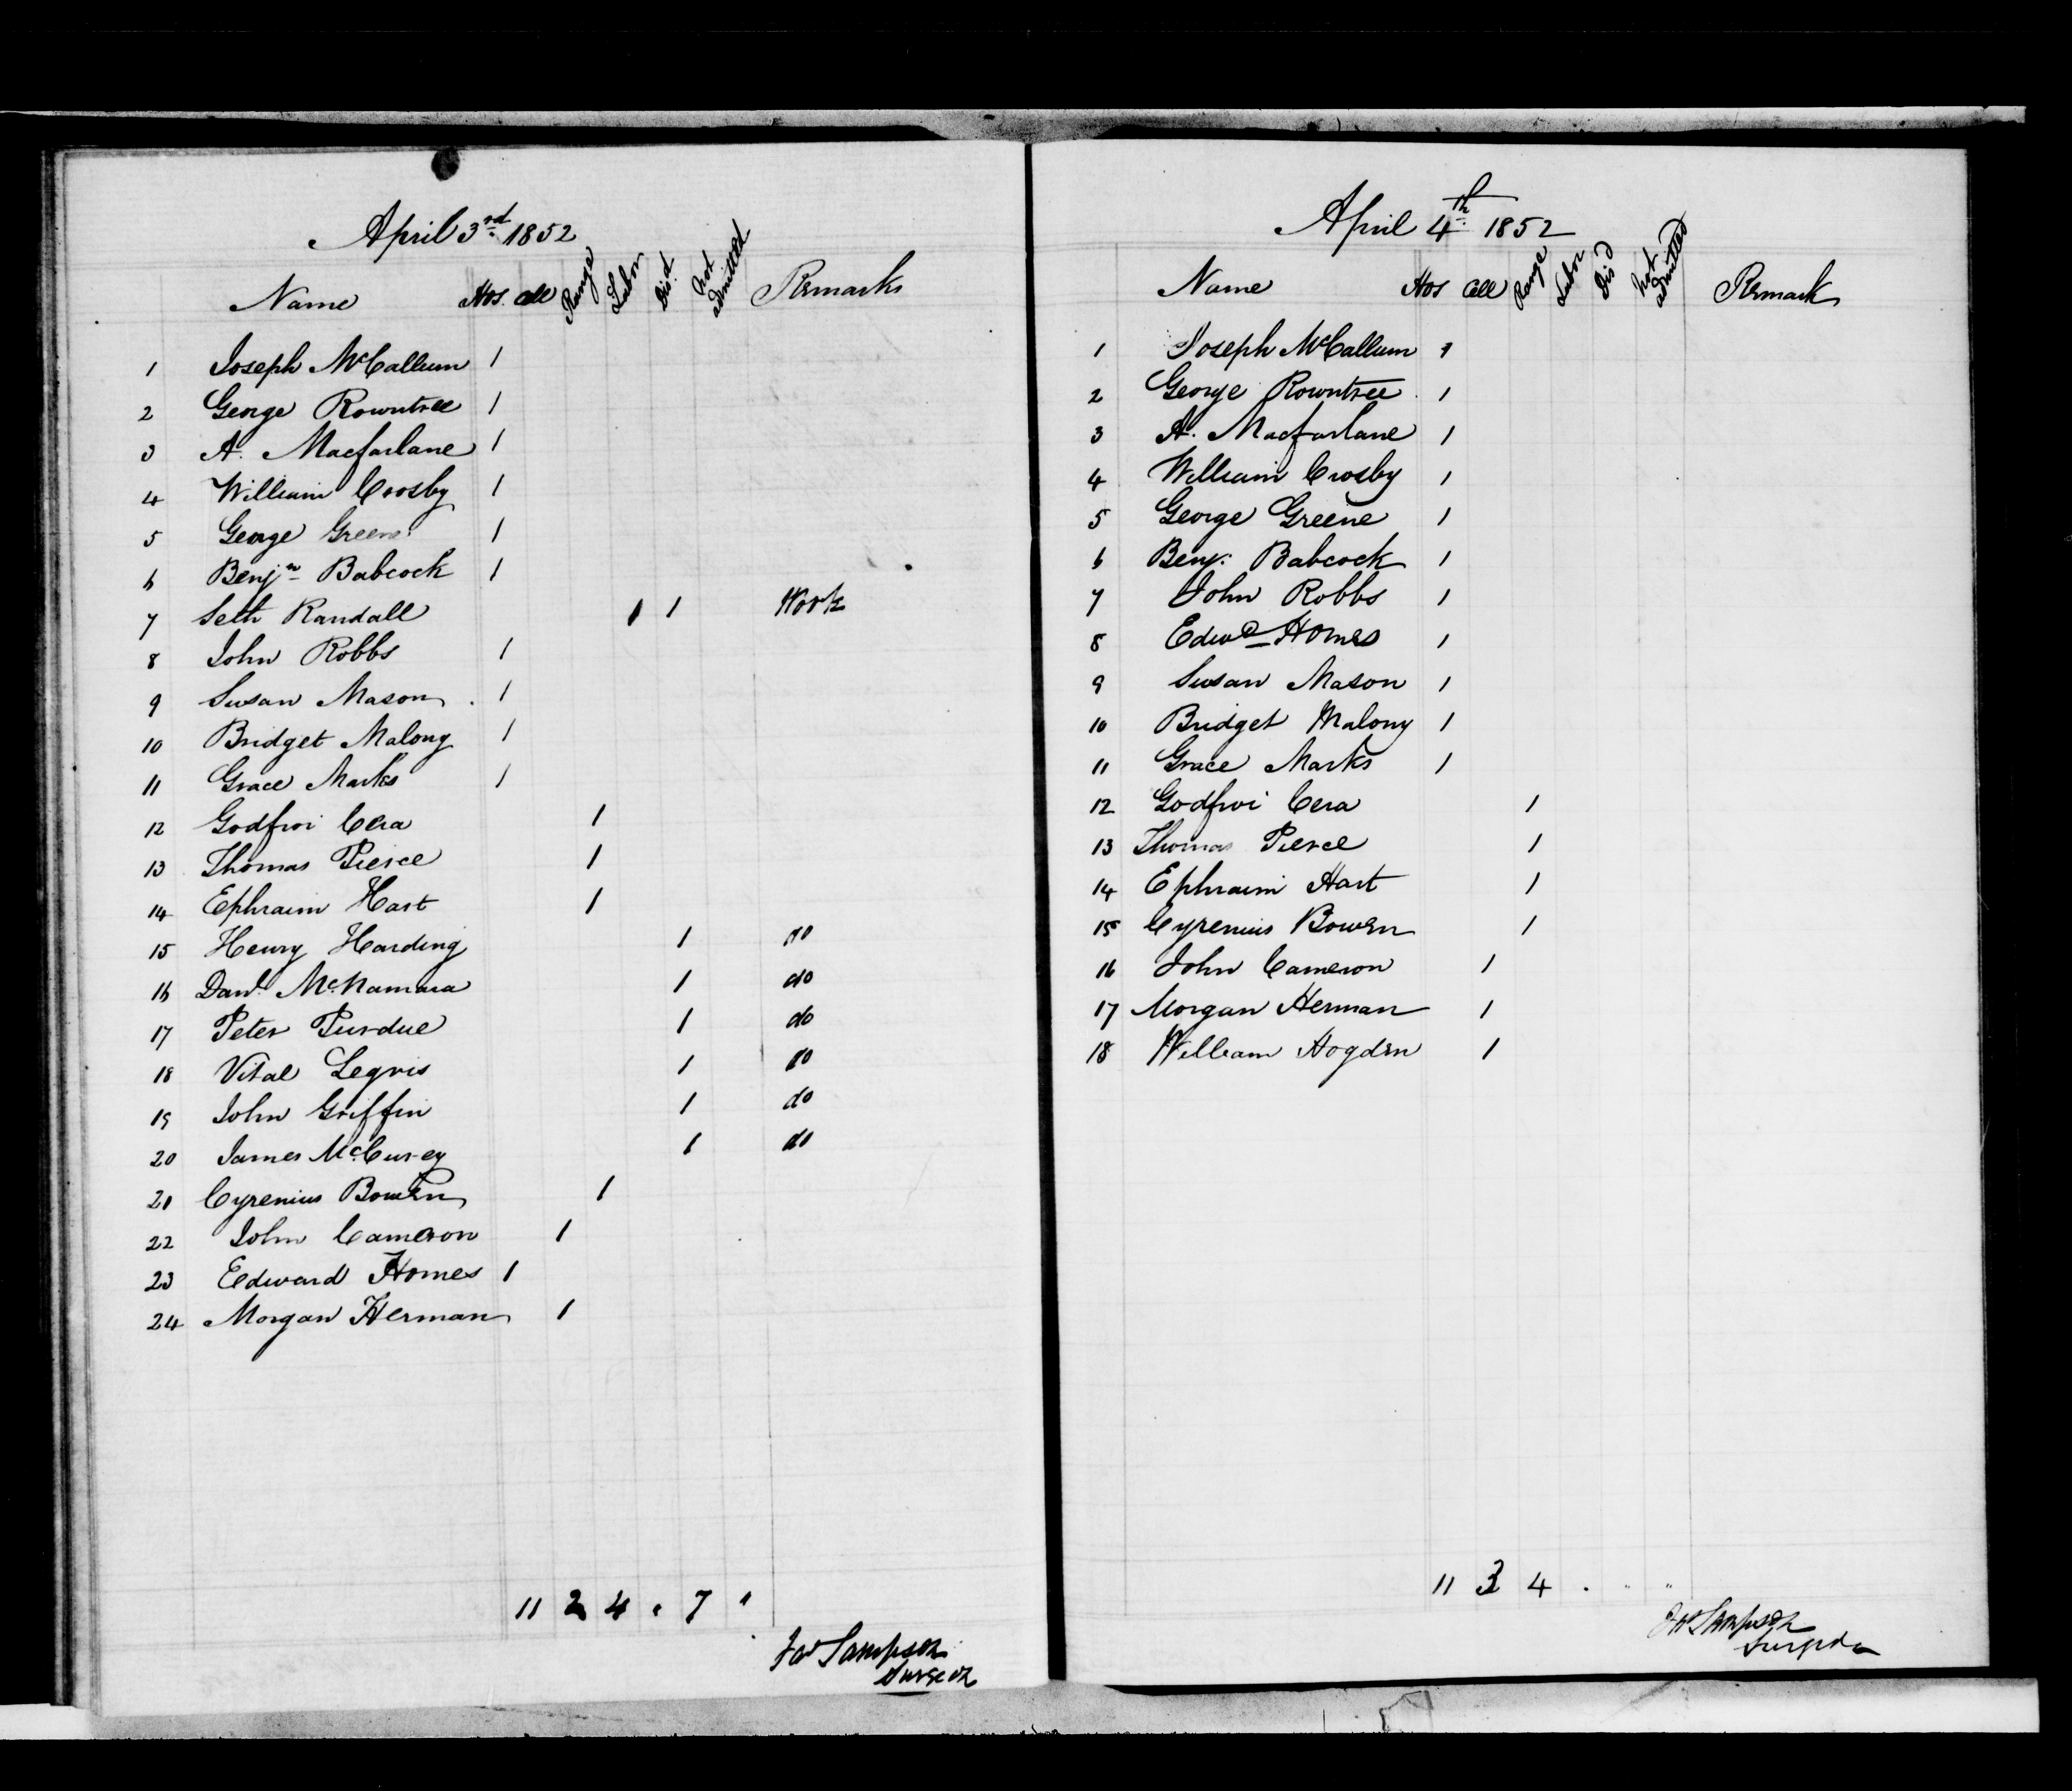 April 3rd 1852
Name Hos. Cell Range Labor Dis.d Not admitted Remarks
1 Joseph McCallum 1
2 George Rowntree 1
3 A. Macfarlane 1
4 William Crosby 1
5 George Greene 1
6 Benjn Babcock 1
7 Seth Randall 1 1 Work
8 John Robbs 1
9 Susan Mason 1
10 Bridget Malony 1
11 Grace Marks 1
12 Godfroi Cera 1
13 Thomas Pierce 1
14 Ephraim Hart 1
15 Henry Harding 1 do
16 Danl. McNamara 1 do
17 Peter Purdue 1 do
18 Vital Legris 1 do
19 John Griffin 1 do
20 James McCurey 1 do
21 Cyrenius Bowen 1
22 John Cameron 1
23 Edward Homes 1
24 Morgan Herman 1
11 2 4 " 7 "
Jas Sampson
Surgeon
April 4th 1852
Name Hos Cell Range Labor Disd Not admitted Remark
1 Joseph McCallum 1
2 George Rowntree 1
3 A. Macfarlane 1
4 William Crosby 1
5 George Greene 1
6 Benj. Babcock 1
7 John Robbs 1
8 Edwd Homes 1
9 Susan Mason 1
10 Bridget Malony 1
11 Grace Marks 1
12 Godfroi Cera 1
13 Thomas Pierce 1
14 Ephraim Hart 1
15 Cyrenius Bowen 1
16 John Cameron 1
17 Morgan Herman 1
18 William Hogden 1
11 3 4 " " "
Jas Sampson
Surgeon